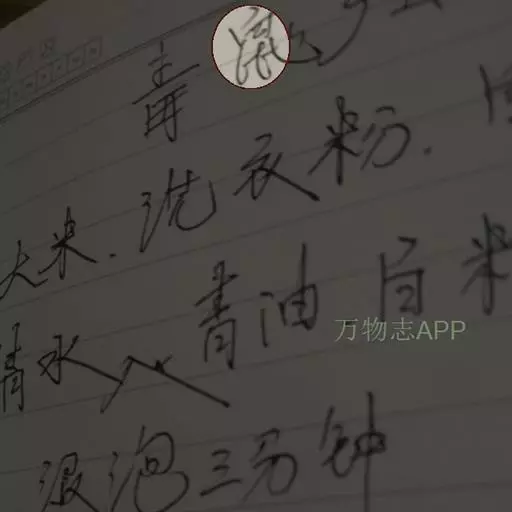 毒鼠
大米.洗衣粉.
清水入青油白米
浸泡三分钟
万物志APP